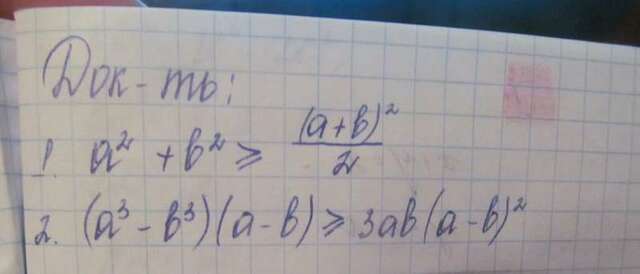 Док-ть:
1. a² + b² ⩾ (a+b)²/2
2. (a³ - b³)(a - b) ⩾ 3ab(a - b)²